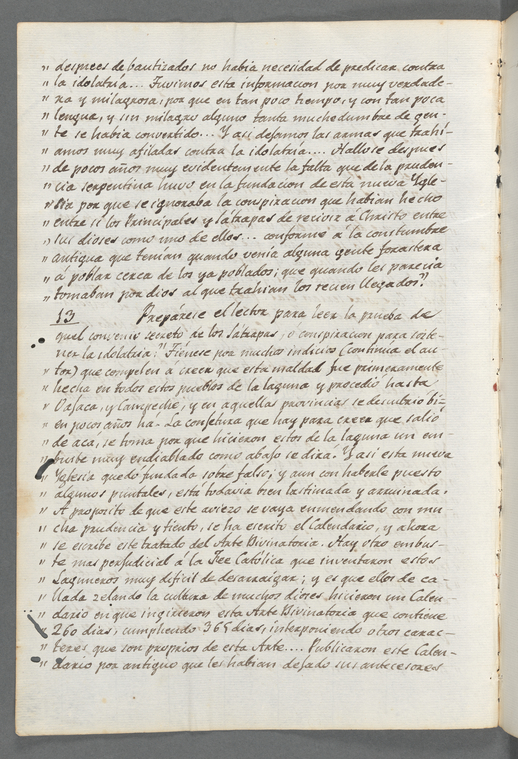 " despues de bautizados no habia necesidad de predicar contra
" la idolatría... Tuvimos esta informacion por muy verdade-
" ra y milagrosa; por que en tan poco tiempo, y con tan poca
" lengua, y sin milagro alguno tanta muchedumbre de gen-
" te se habia convertido... Y asi dejamos las armas que trahi-
" amos muy afiladas contra la idolatría.... Hallose despues
" de pocos años muy evidentemente la falta que de la pruden-
" cia serpentina huvo en la fundacion de esta nueva Ygle-
" sia por que se ignoraba la conspiracion que habian hecho
" entre sí los Principales y satrapas de recivir á Christo entre
" sus dioses como uno de ellos... conforme á la constumbre
" antigua que tenian quando venía alguna gente forastera
" á poblar cerca de los ya poblados; que quando les parecia
" tomaban por dios al que trahian los recien llegados."
13 Preparese el lector para leer la prueba de
quel convenio secreto de los Satrapas, ó conspiracion para soste-
ner la idolatria." Tienese por muchos indicios (continua el au-
" tor) que compelen á creer que esta maldad fue primeramente
" hecha en todos estos pueblos de la laguna y procedió hasta
" Oajaca, y Campeche; y en aquellas provincias se descubrio bi-
" en pocos años ha. La conjetura que hay para creer que salió
" de aca, se toma por que hicieron estos de la laguna un em-
" buste muy endiablado como abajo se dira. Y asi esta nueva
" Yglesia quedó fundada sobre falso; y aun con haberle puesto
" algunos puntales, está todavia bien lastimada y arruinada.
" A proposito de que este aviezo se vaya enmendando con mu
" cha prudencia y tiento, se ha escrito el Calendario, y ahora
" se escribe este tratado del Arte Divinatoria. Hay otro embus-
" te mas perjudicial á la Fee Católica que inventaron estos
" Laguneros muy dificil de desarraigar; y es que ellos de ca-
" llada zelando la cultura de muchos dioses, hicieron un Calen-
" dario en que ingirieron esta Arte Divinatoria que contiene
" 260 dias; cumpliendo 365 dias, interponiendo otros carac-
" teres que son proprios de esta Arte.... Publicaron este Calen-
" dario por antiguo que les habian dejado sus antecesores